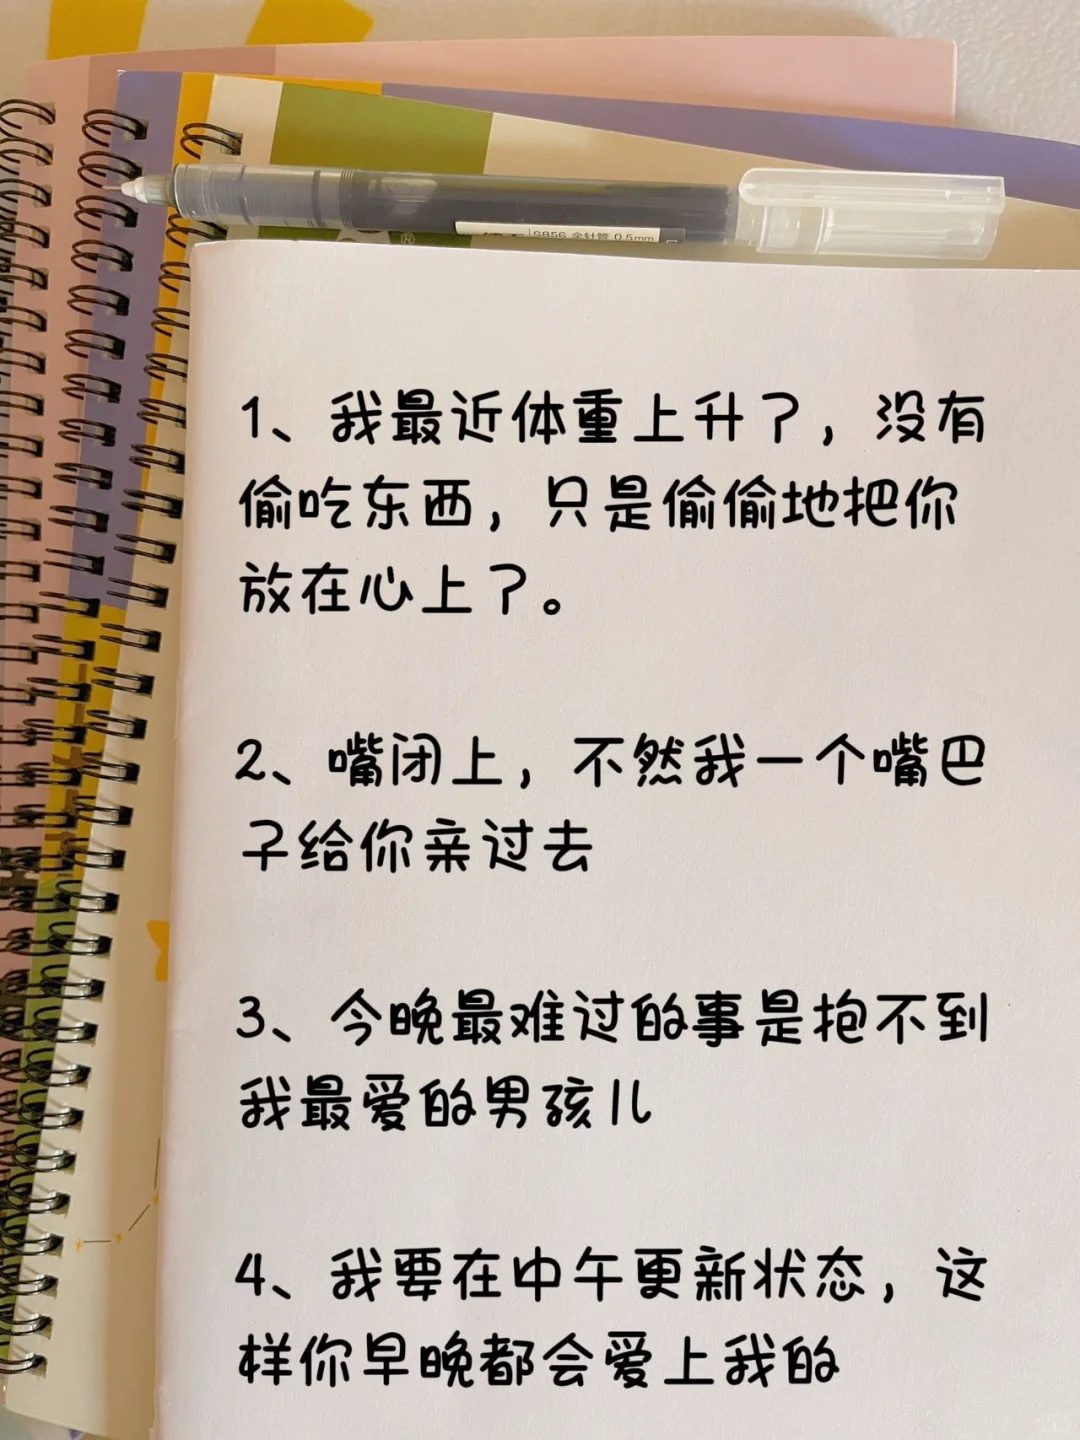 S856 全针管 0.5mm
®
1、我最近体重上升了，没有
偷吃东西，只是偷偷地把你
放在心上了。
2、嘴闭上，不然我一个嘴巴
子给你亲过去
3、今晚最难过的事是抱不到
我最爱的男孩儿
4、我要在中午更新状态，这
样你早晚都会爱上我的